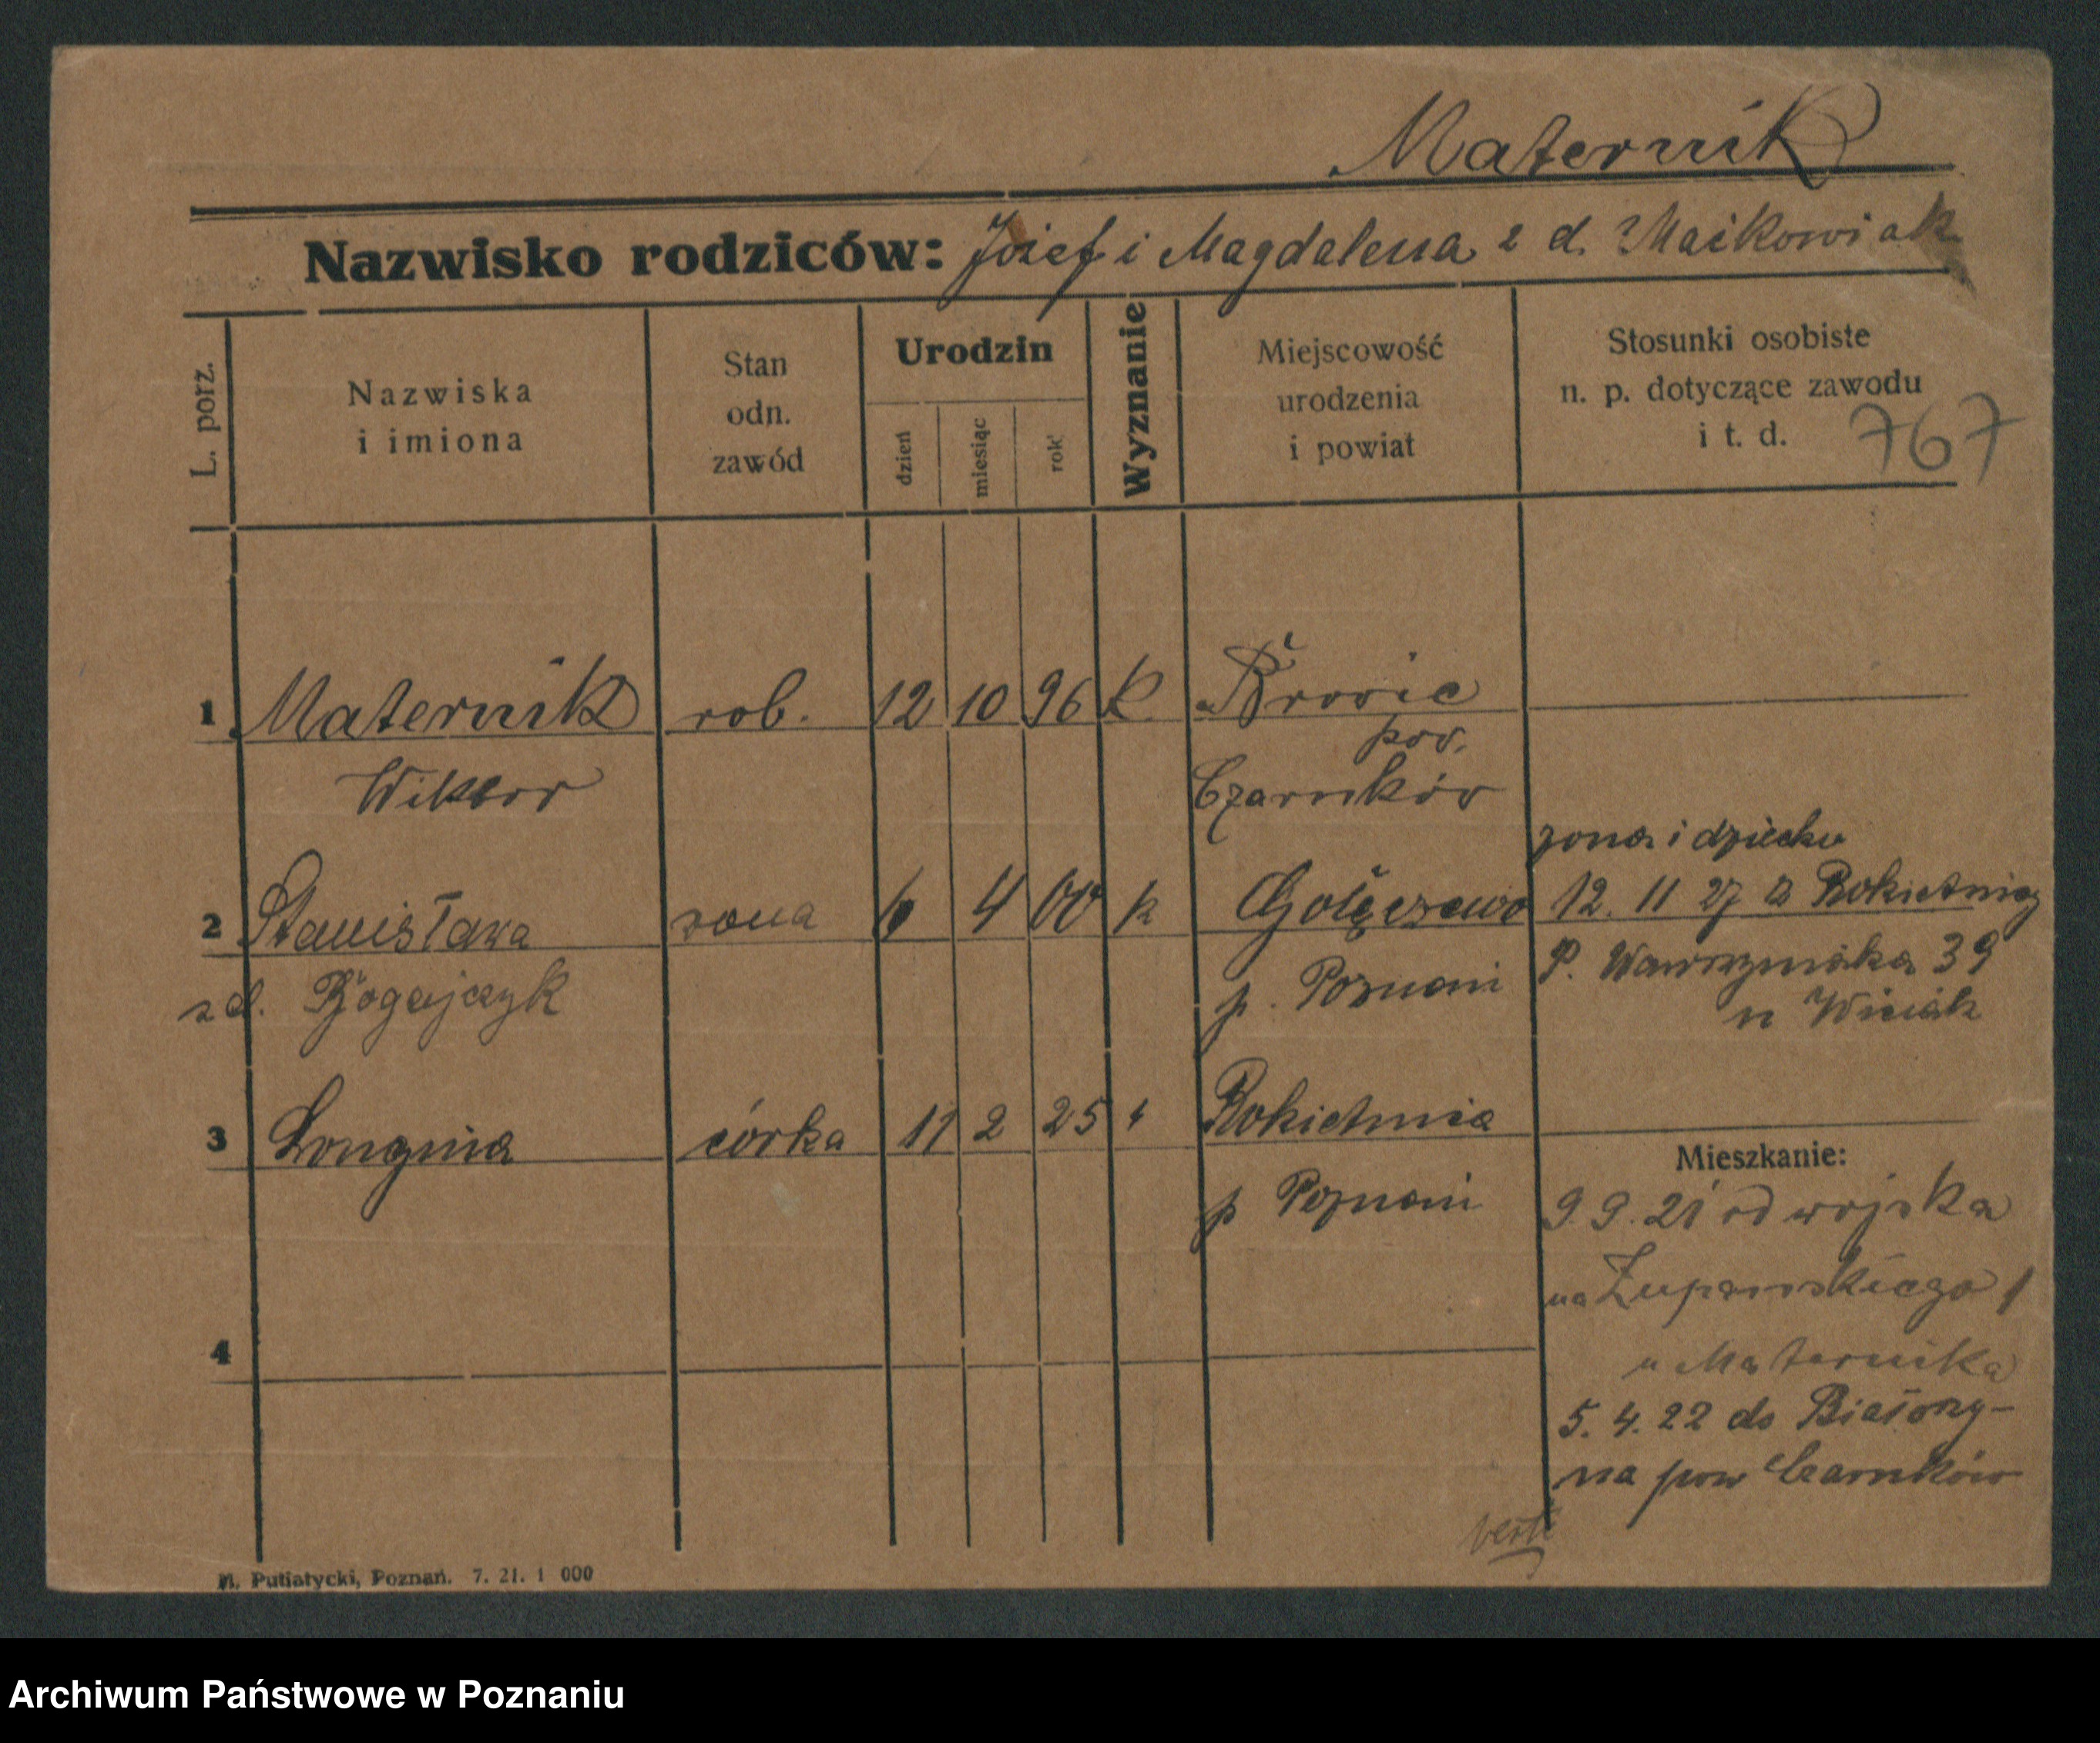 Maternik
Nazwisko rodziców: Józef i Magdalena z d. Maćkowiak
L. porz.
Nazwiska
i imiona
Stan
odn.
zawód
Urodzin
dzień
miesiąc
rok
Wyznanie
Miejscowość
urodzenia
i powiat
Stosunki osobiste
n. p. dotyczące zawodu
i t. d.
767
1 Maternik rob. 12 10 96 K.
pow.
Wiktor Czarnków
żona i dziecko
2 Stanisława żona 6 4 00 k Gołęczewo 12. 11 27 z Rokietnicy
z d. Bogajczyk p. Poznań P. Wawrzyniaka 39
3 Longina córka 11 2 25 " Rokietnica
Mieszkanie:
p Poznań 9. 9. 21 od wojska
na Żupańskiego 1
u Maternika
4
5. 4. 22 do Białęży-
na pow Czarnków
verte
M. Putiatycki, Poznań. 7. 21. 1 000
Archiwum Państwowe w Poznaniu